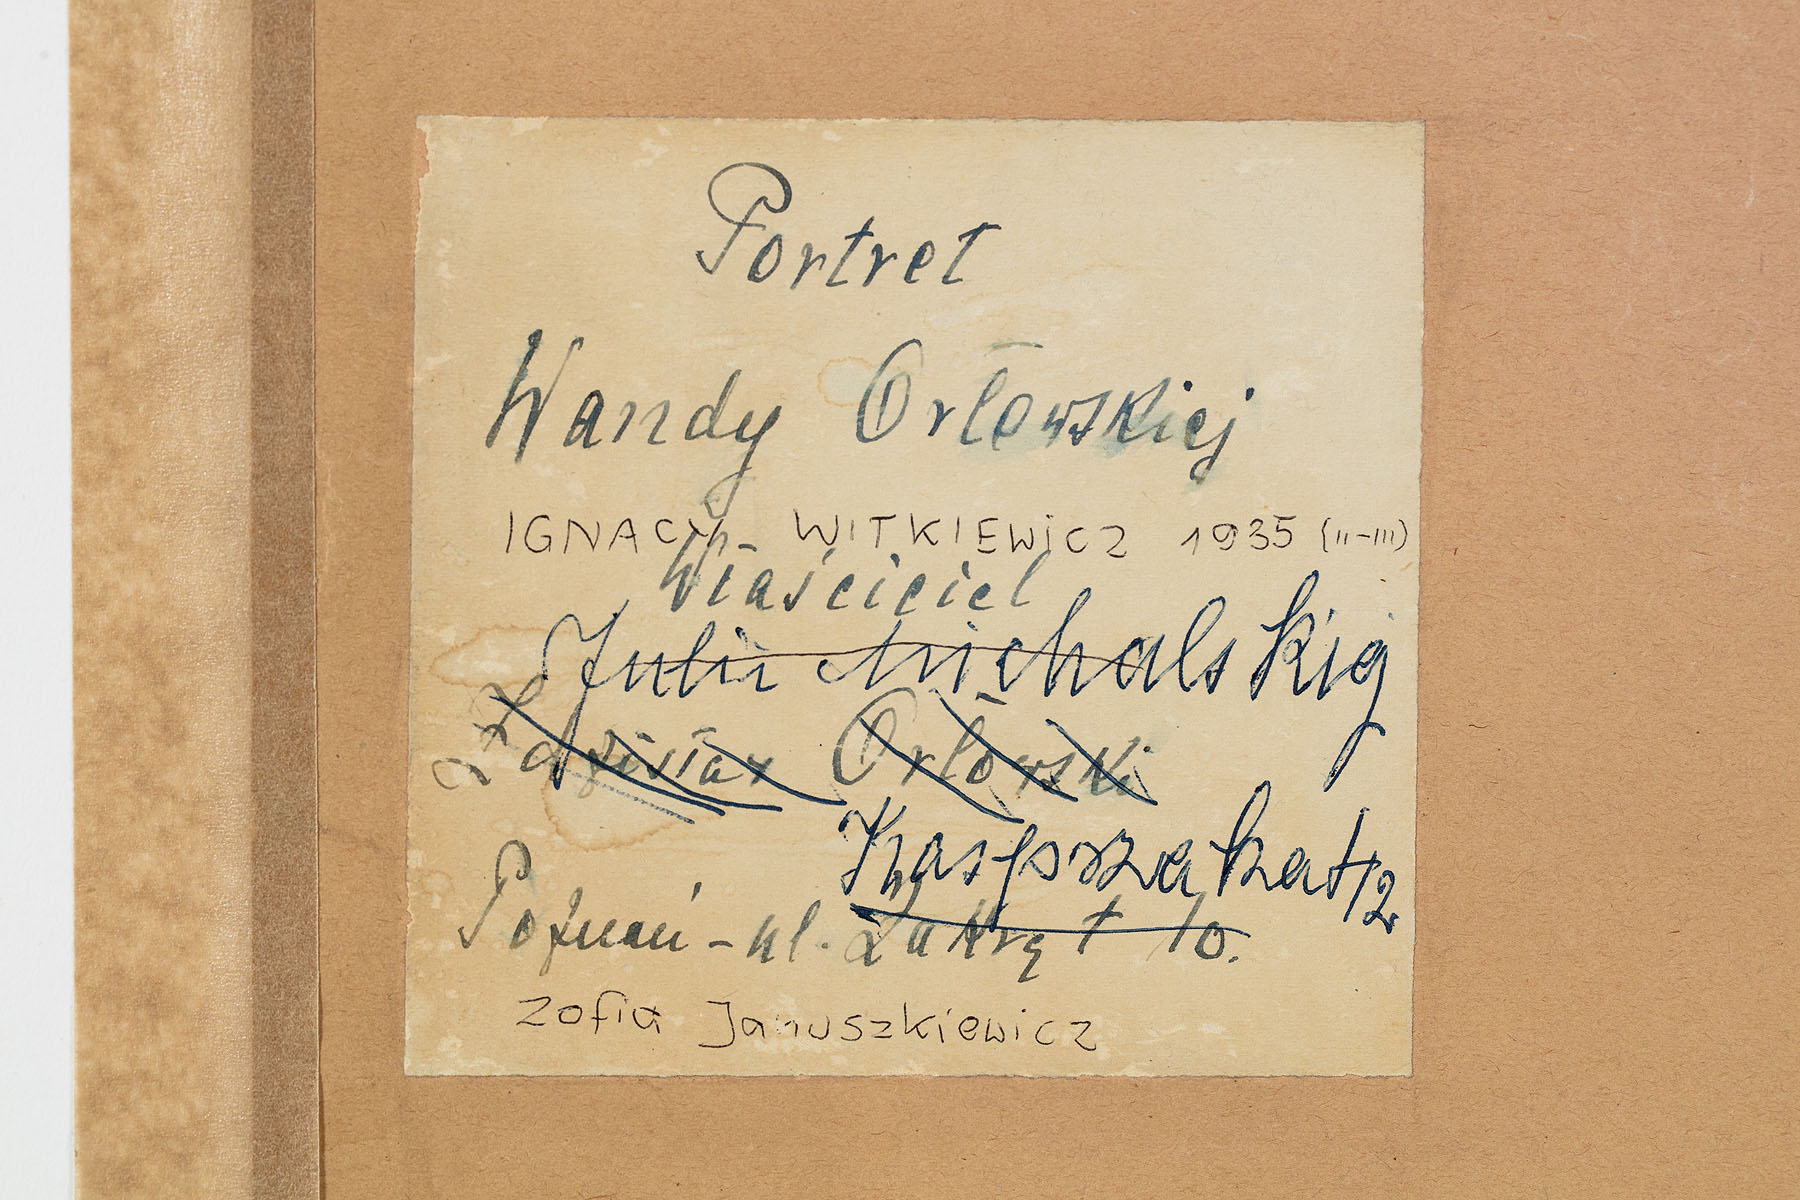 Portret
Wandy Orłowskiej
IGNACY WITKIEWICZ 1935 (II-III)
Właściciel
Julii Michalskiej
Zdzisław Orłowski
Kasprzaka
Poznań - ul. Zakręt 10.
Zofia Januszkiewicz